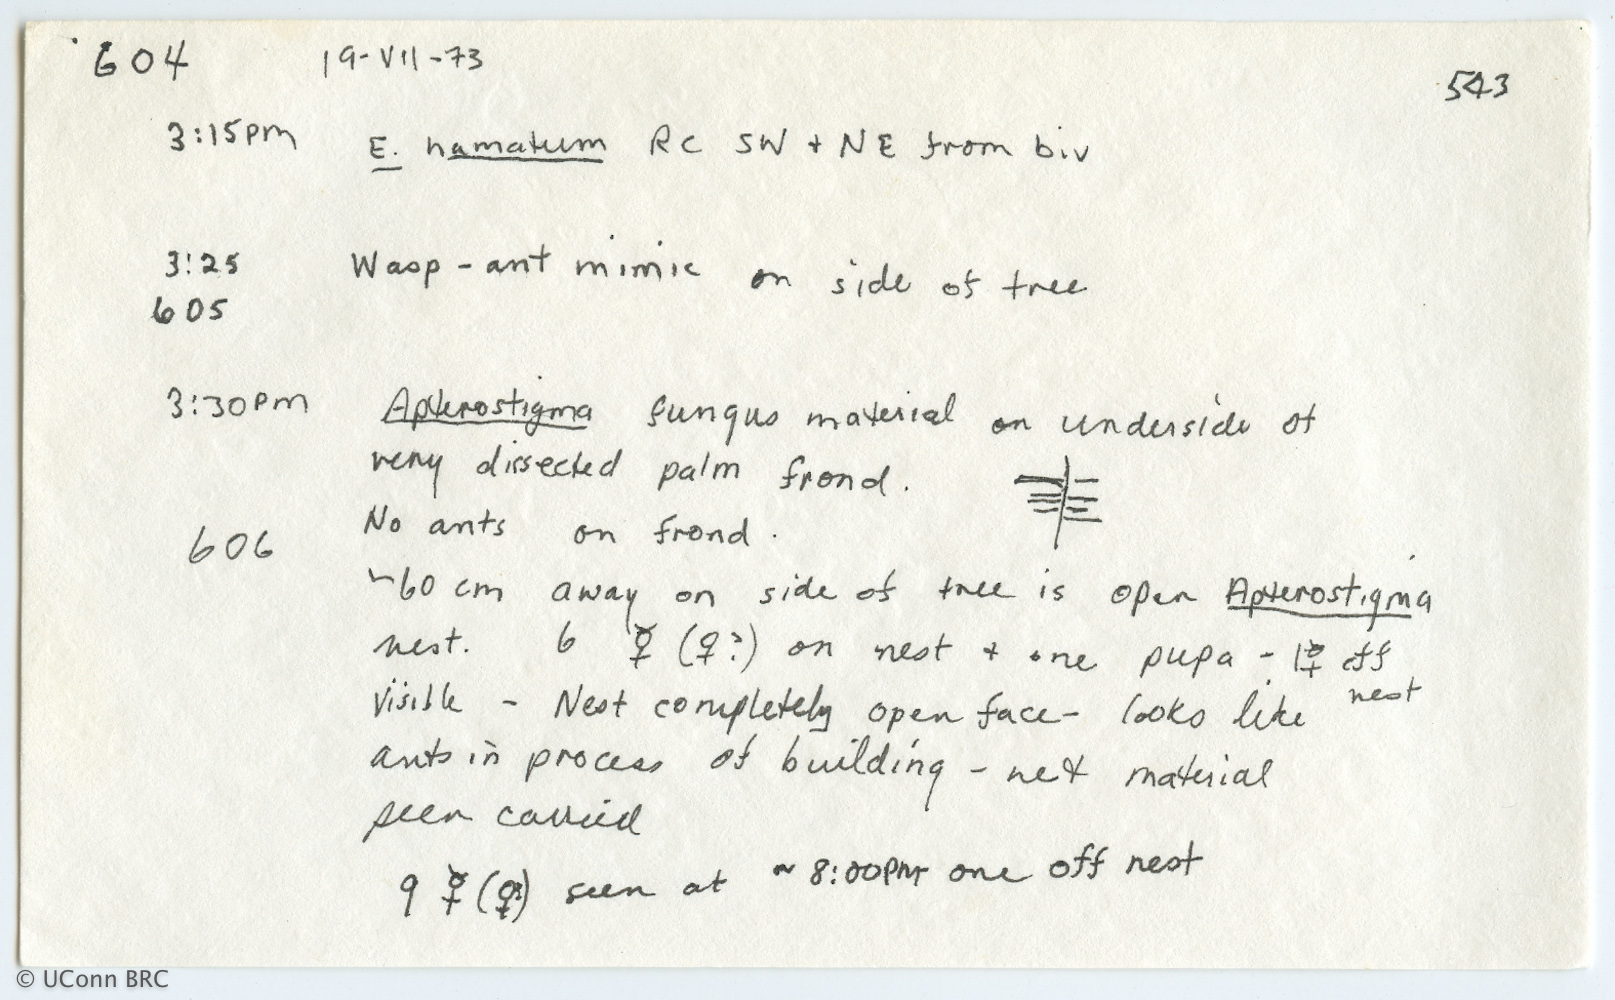 604 19-VII-73 543
3:15pm E. hamatum RC SW + NE from biv
3:25 Wasp-ant mimic on side of tree
605
3:30pm Apterostigma fungus material on underside of
very dissected palm frond.
No ants on frond.
606
~60 cm away on side of tree is open Apterostigma
nest. 6 ☿ (♀?) on nest + one pupa - 1☿ off
nest
visible - Nest completely open face - looks like
ants in process of building - nest material
seen carried
9 ☿ (♀?) seen at ~ 8:00PM one off nest
© UConn BRC